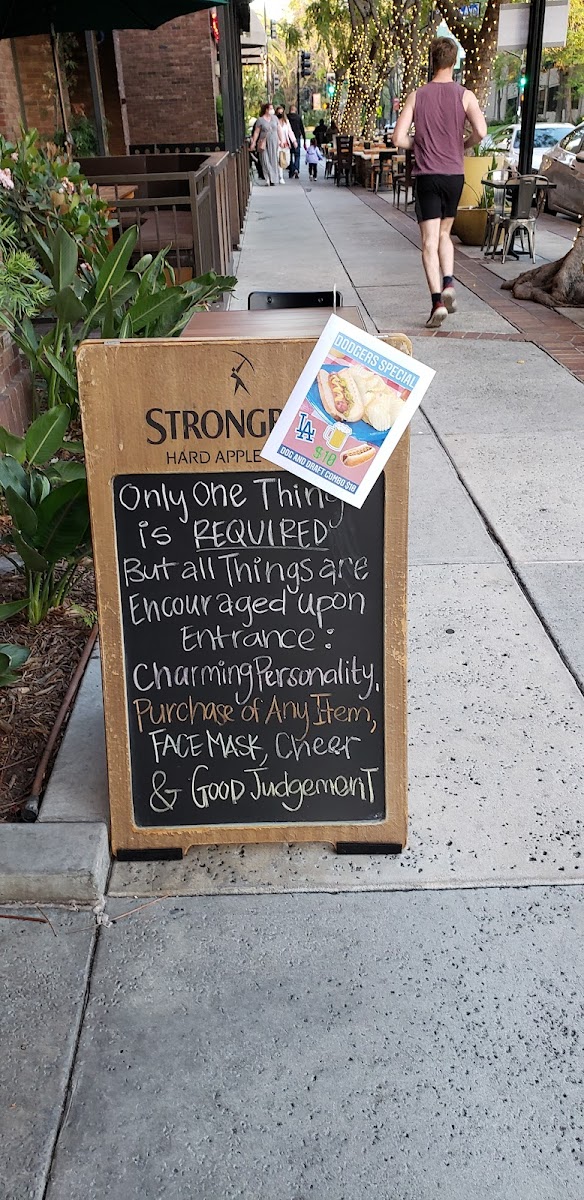 DODGERS SPECIAL
LA
$10
DOG AND DRAFT COMBO $10
HARD APPLE
Only One Thing
is REQUIRED
But all Things are
Encouraged upon
Entrance:
Charming Personality,
Purchase of Any Item,
FACE MASK, Cheer
& Good Judgement